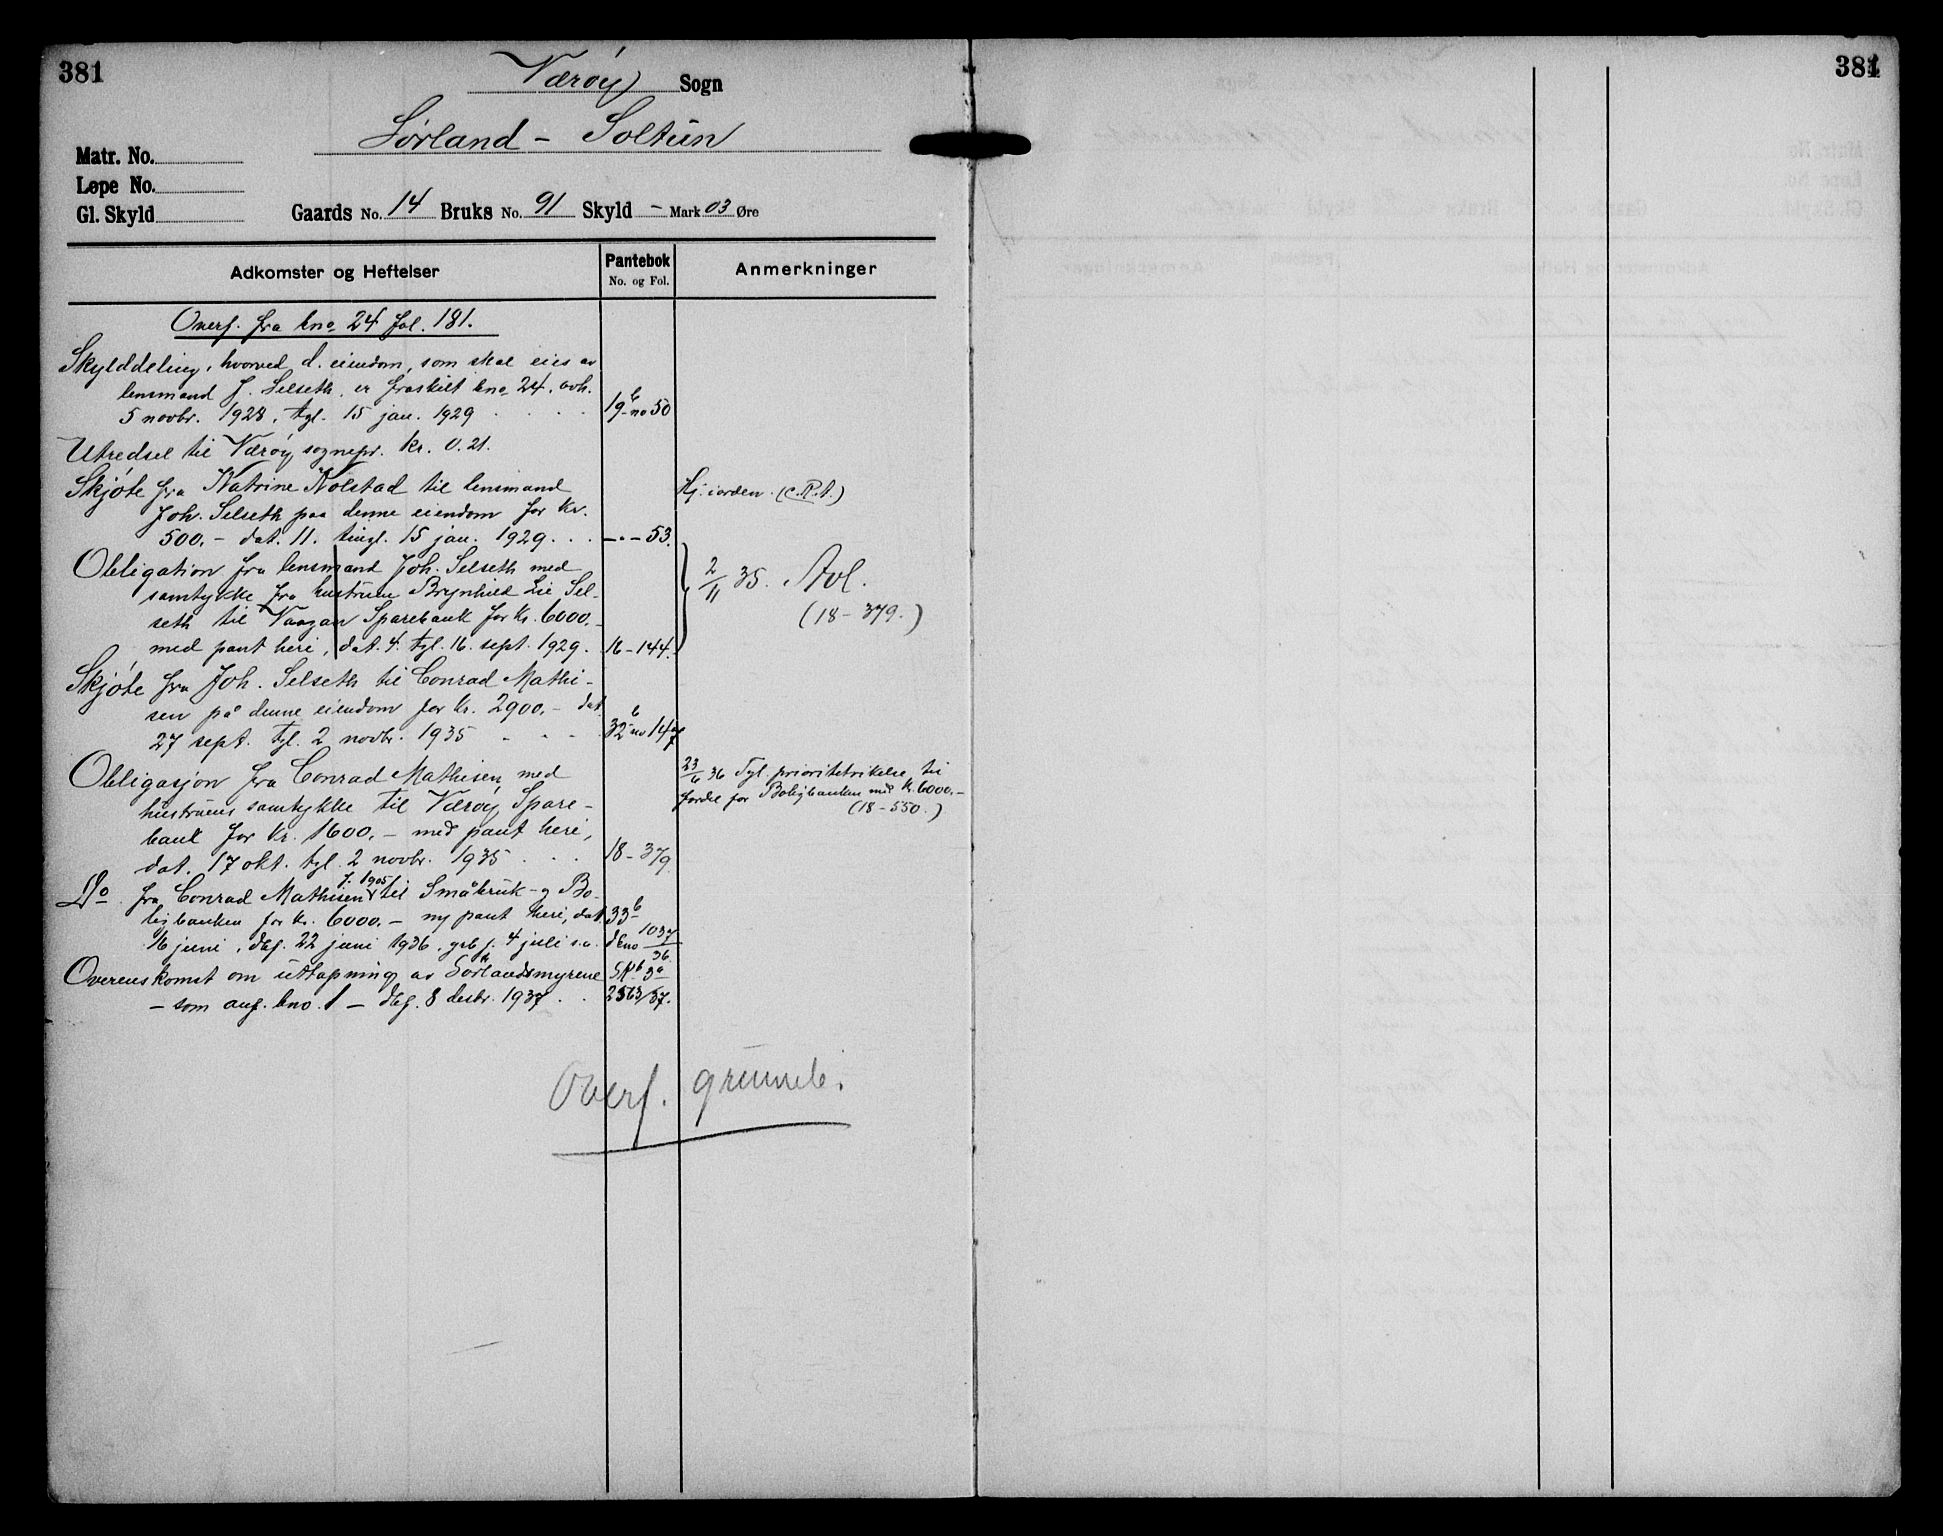 381
381
Værøy Sogn
Sørland - Soltun
Matr. No.
Løpe No.
Gl. Skyld
Gaards No. 14 Bruks No. 91 Skyld - Mark 03 Øre
Adkomster og Heftelser
Pantebok
No. og Fol.
Anmerkninger
Overf. fra bno 24 fol. 181.
Skylddeling, hvorved d. eiendom, som skal eies av
lensmand J. Selseth, er fraskilt bno 24, avh.
5 novbr. 1928, tgl. 15 jan. 1929 . . . . 19b no 50
Utredsel til Værøy sognepr. kr. 0.21.
Skjøte fra Katrine Kolstad til lensmand Hj. iorden. (c.P.t.)
Joh. Selseth paa denne eiendom for kr.
500.- dat. 11. tingl. 15 jan. 1929 . . . -"- 53.
Obligation fra lensmand Joh. Selseth med 2/11 35. Avl.
samtykke fra hustruen Brynhild Lie Sel-
seth til Vaagan Sparebank for kr. 6000.- (18-379.)
med pant heri, dat. 4. tgl. 16. sept. 1929. 16-144.
Skjøte fra Joh. Selseth til Conrad Mathi-
sen på denne eiendom for kr. 2900.- dat.
27 sept. tgl. 2 novbr. 1935 . . . 32b no 147
Obligasjon fra Conrad Mathisen med 23/6 36 Tgl. prioritetvikelse til
hustruens samtykke til Værøy Spare- fordel for Boligbanken med kr. 6000.-
bank for kr. 1600.- med pant heri, (18-550.)
dat. 17 okt. tgl. 2 novbr. 1935 . . . 18-379
Do fra Conrad Mathisen f. 1905 til Småbruk- og Bo-
ligbanken for kr. 6000.- ny pant heri, dat. 33b
16 juni, dbf. 22 juni 1936, grb f. 4 juli s.a. dbno 1037/36.
Overenskomst om uttapning av Sørlandsmyrene
- som anf. bno. 1 - dbf. 8 desbr. 1937 . . 2563/37.
Overf. grunnb.